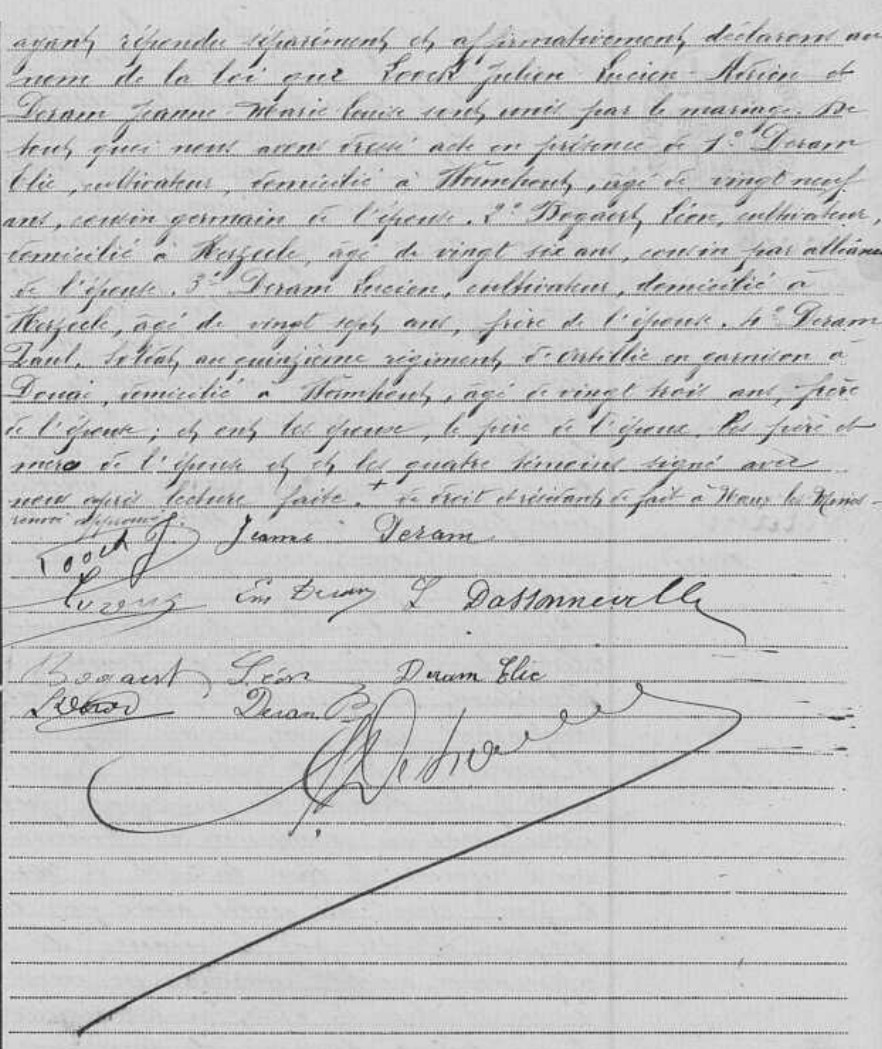 ayant répondu séparément et affirmativement, déclarons au
nom de la loi que Loock Julien Lucien Adrien et
Deram Jeanne Marie Louise sont unis par le mariage. De
tout quoi nous avons dressé acte en présence de 1° Deram
Elie, cultivateur, domicilié à Wormhout, agé de vingt neuf
ans, cousin germain de l'épouse. 2° Bogaert Léon, cultivateur,
domicilié à Herzeele, âgé de vingt six ans, cousin par alliance
de l'épouse. 3° Deram Lucien, cultivateur, domicilié à
Herzeele, âgé de vingt sept ans, frère de l'épouse. 4° Deram
Paul, soldat, au quinzième régiment, d'artillie en garnison à
Douai, domicilié à Wormhout, âgé de vingt trois ans, frère
de l'épouse; et ont les époux, le père de l'époux, les père et
mère de l'épouse et et les quatre témoins signé avec
nous après lecture faite. + de droit et résidant de fait à Vaux les
renvoi approuvé.
Loock J. Jeanne Deram
Em Deram L Dassonneville
Bogaert Léon Deram Elie
Deram P